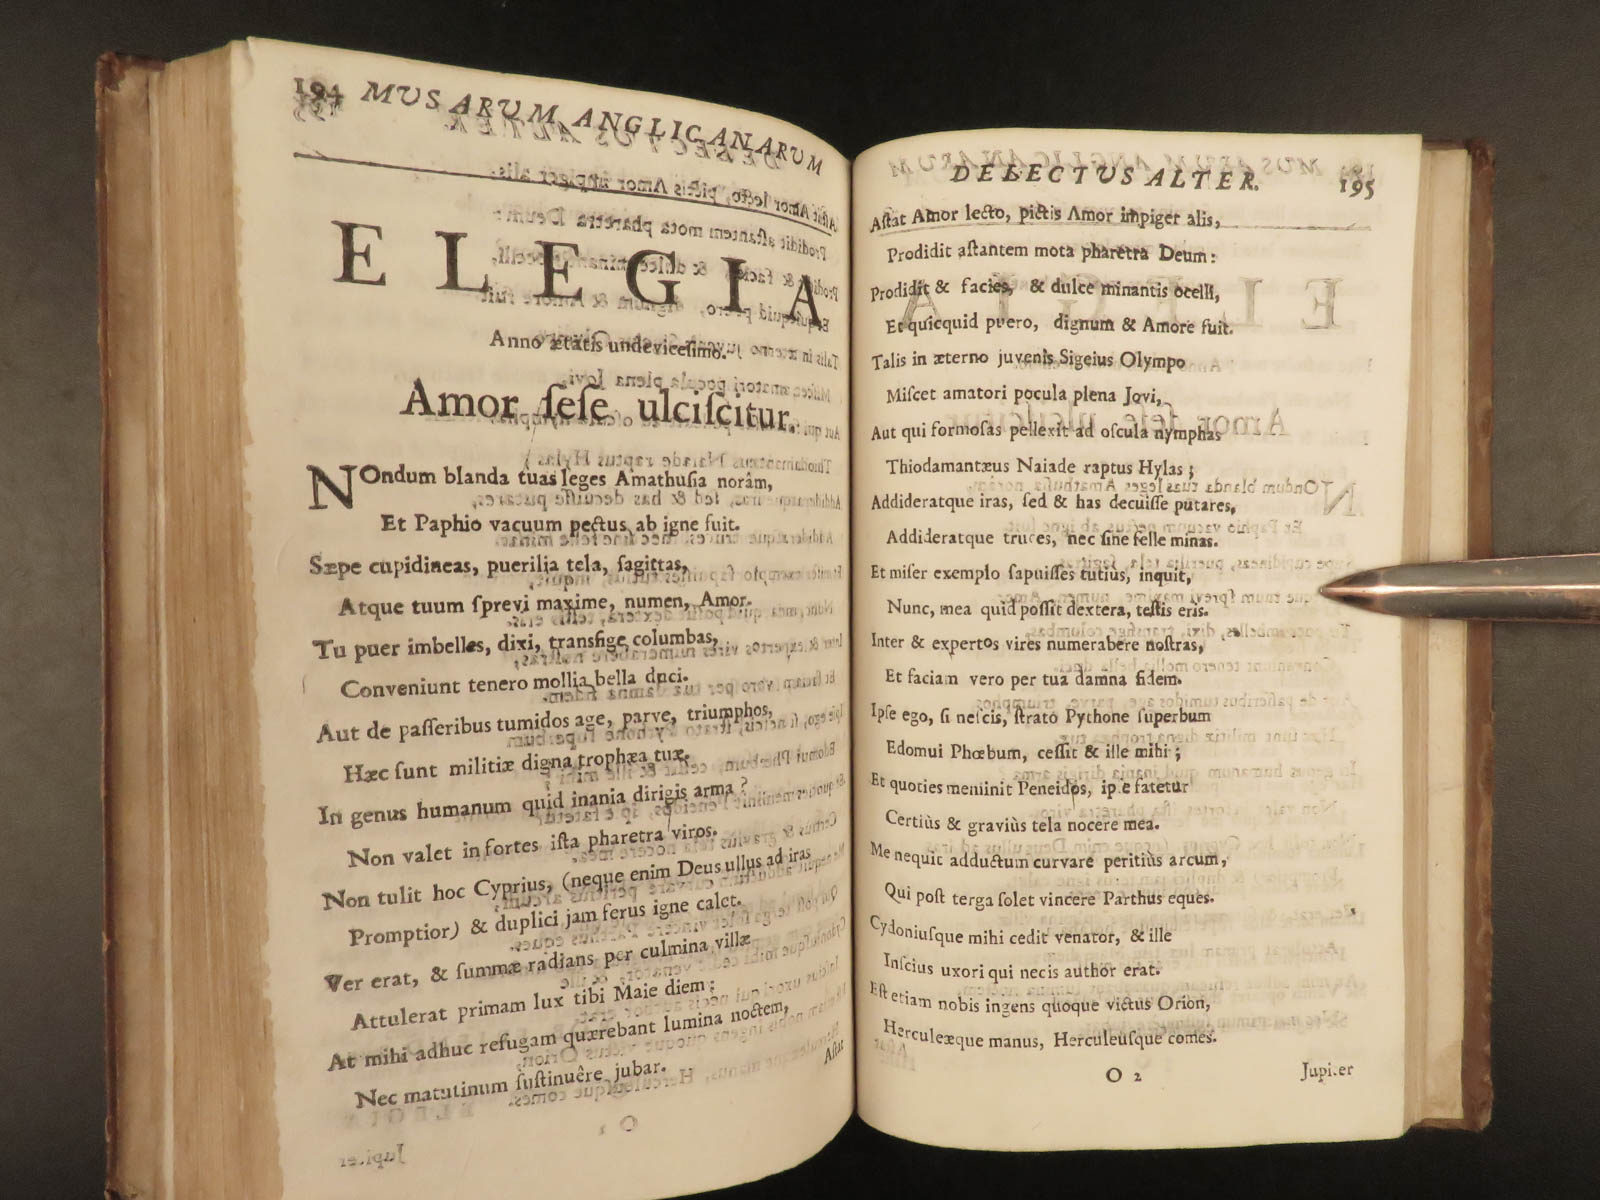 194 MUSARUM ANGLICANARUM
ELEGIA
Anno ætatis undevicesimo.
Amor ſeſe ulciſcitur.
NOndum blanda tuas leges Amathuſia norâm,
Et Paphio vacuum pectus ab igne fuit.
Sæpe cupidineas, puerilia tela, ſagittas,
Atque tuum ſprevi maxime, numen, Amor.
Tu puer imbelles, dixi, transfige columbas,
Conveniunt tenero mollia bella duci.
Aut de paſſeribus tumidos age, parve, triumphos,
Hæc ſunt militiæ digna trophæa tuæ.
In genus humanum quid inania dirigis arma?
Non valet in fortes iſta pharetra viros.
Non tulit hoc Cyprius, (neque enim Deus ullus ad iras
Promptior) & duplici jam ferus igne calet.
Ver erat, & ſummæ radians per culmina villæ
Attulerat primam lux tibi Maie diem:
At mihi adhuc refugam quærebant lumina noctem,
Nec matutinum ſuſtinuêre jubar.
Aſtat
DELECTUS ALTER. 195
Aſtat Amor lecto, pictis Amor impiger alis,
Prodidit aſtantem mota pharetra Deum:
Prodidit & facies, & dulce minantis ocelli,
Et quicquid puero, dignum & Amore fuit.
Talis in æterno juvenis Sigeius Olympo
Miſcet amatori pocula plena Jovi,
Aut qui formoſas pellexit ad oſcula nymphas
Thiodamantæus Naiade raptus Hylas;
Addideratque iras, ſed & has decuiſſe putares,
Addideratque truces, nec ſine felle minas.
Et miſer exemplo ſapuiſſes tutius, inquit,
Nunc, mea quid poſſit dextera, teſtis eris.
Inter & expertos vires numerabere noſtras,
Et faciam vero per tua damna fidem.
Ipſe ego, ſi neſcis, ſtrato Pythone ſuperbum
Edomui Phœbum, ceſſit & ille mihi;
Et quoties meminit Peneidos, ipſe fatetur
Certiùs & graviùs tela nocere mea.
Me nequit adductum curvare peritiùs arcum,
Qui poſt terga ſolet vincere Parthus eques.
Cydoniuſque mihi cedit venator, & ille
Inſcius uxori qui necis author erat.
Eſt etiam nobis ingens quoque victus Orion,
Herculeæque manus, Herculeuſque comes.
O 2 Jupiter